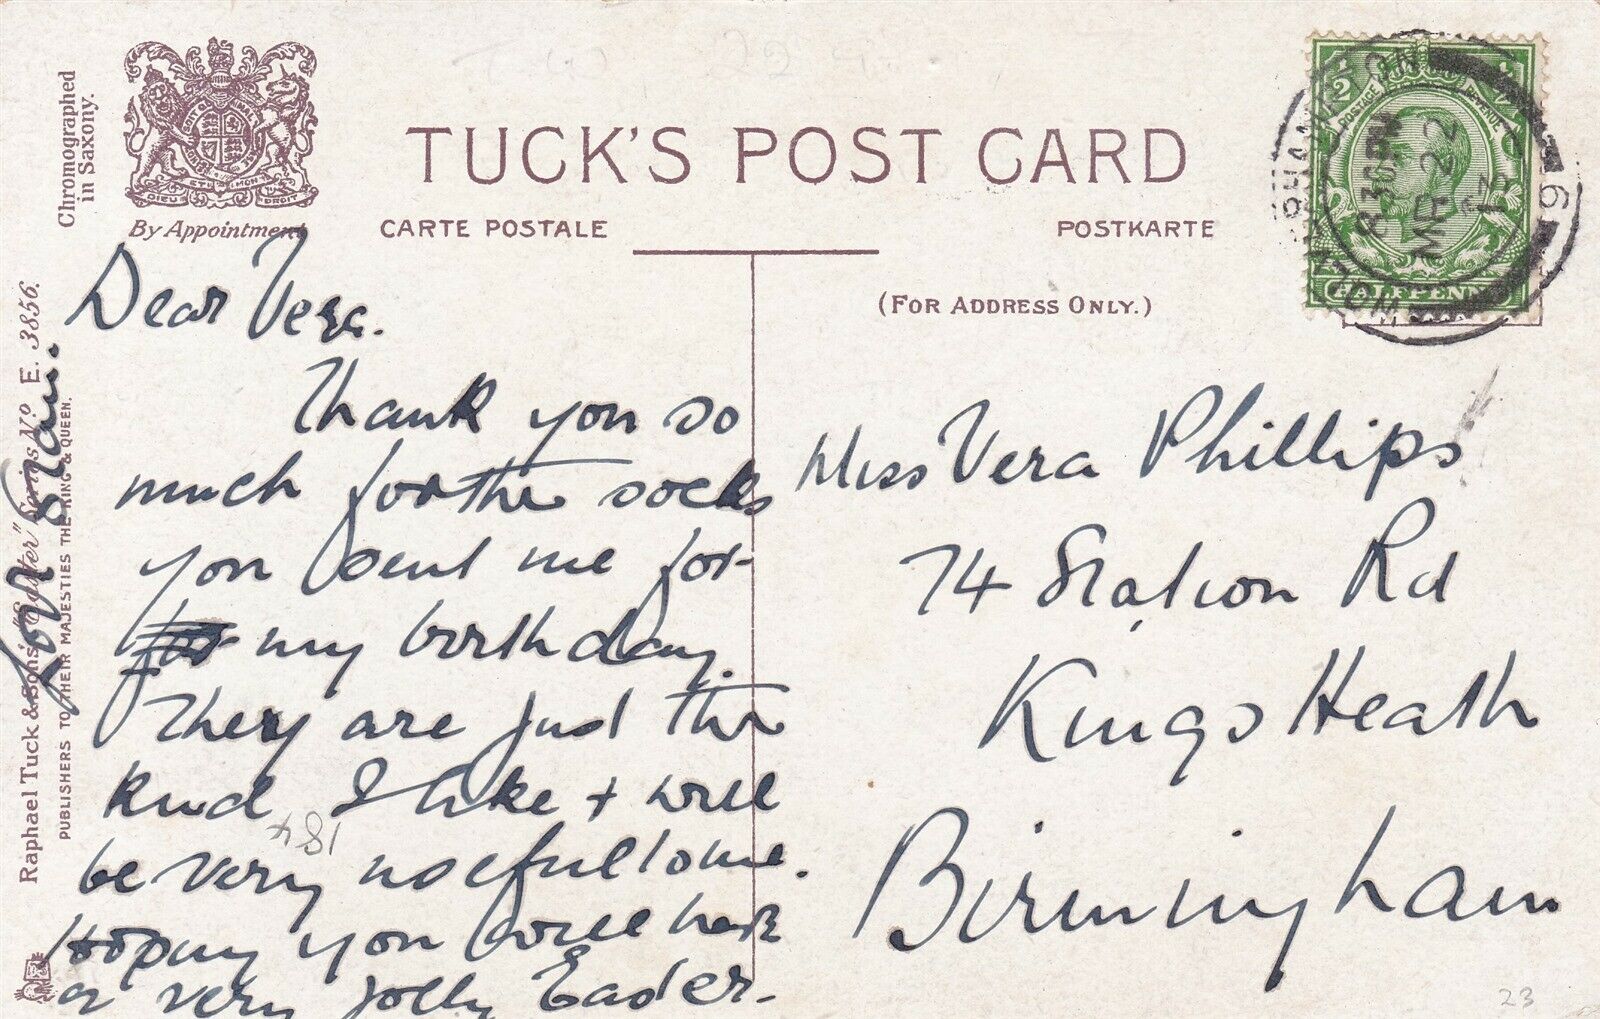 Chromographed
in Saxony.
DIEU ET MON DROIT
By Appointment
TUCK'S POST CARD
CARTE POSTALE
POSTKARTE
(FOR ADDRESS ONLY.)
POSTAGE REVENUE
HALFPENNY
8 30 PM
MR 22
13
Dear Vera.
Thank you so
much for the socks
you sent me for
for my birthday.
They are just the
kind I like + will
be very useful to me.
Hoping you will have
a very jolly Easter.
Love Stan.
Miss Vera Phillips
74 Station Rd
Kings Heath
Birmingham
Raphael Tuck & Sons' "Easter" Series No. E. 3856.
PUBLISHERS TO THEIR MAJESTIES THE KING & QUEEN.
23